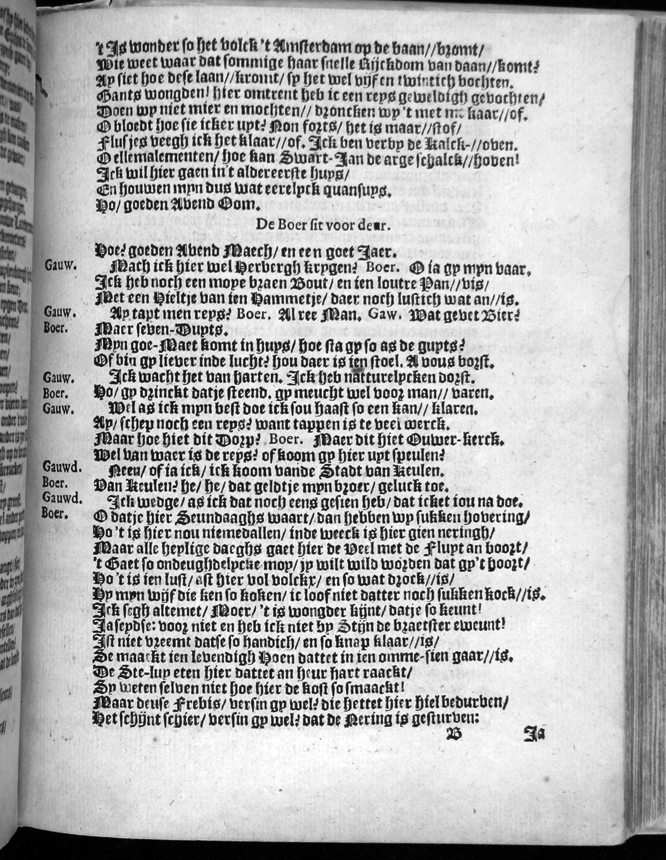 't Is wonder so het volck 't Amsterdam op de baan//bromt/
Wie weet waar dat sommige haar snelle Rijckdom van daan//komt?
Ay siet hoe dese laan//kromt/ sy het wel vijf en twintich bochten.
Gants wongden! hier omtrent heb ic een reys geweldigh gevochten/
Doen wy niet mier en mochten// droncken wy 't met m kaar//of.
O bloedt hoe sie icker uyt? Non forts/ het is maar//stof/
Flusjes veegh ick het klaar//of. Ick ben verby de Kalck-//oven.
O ellemalementen/ hoe kan Swart-Jan de arge schalck//hoven!
Ick wil hier gaen in't aldereerste huys/
En houwen myn dus wat eerelyck quansuys.
Ho/ goeden Avend Oom.
De Boer sit voor deur.
Hoe? goeden Avend Maech/ en een goet Jaer.
Gauw. Mach ick hier wel Herbergh krygen? Boer. O ia gy myn vaar.
Ick heb noch een moye braen Bout/ en ien loutre Pan//vis/
Met een Hieltje van ien Hammetje/ daer noch lustich wat an//is.
Gauw. Ay tapt men reys? Boer. Al ree Man. Gaw. Wat gevet Bier?
Boer. Maer seven-Duyts.
Myn goe-Maet komt in huys/ hoe sta gy so as de guyts?
Of bin gy liever inde lucht? hou daer is ien stoel. A vous borst.
Gauw. Ick wacht het van harten. Ick heb natturelycken dorst.
Boer. Ho/ gy drinckt datje steend, gy meucht wel voor man// varen.
Gauw. Wel as ick myn best doe ick sou haast so een kan// klaren.
Ay/ schep noch een reys? want tappen is te veel werck.
Maar hoe hiet dit Dorp? Boer. Maer dit hiet Ouwer-kerck.
Wel van waer is de reys? of koom gy hier uyt speulen?
Gauwd. Neen/ of ia ick/ ick koom vande Stadt van Keulen.
Boer. Van Keulen? he/ he/ dat geldtje myn broer/ geluck toe.
Gauwd. Ick wedge/ as ick dat noch eens gesien heb/ dat icket iou na doe.
Boer. O datje hier Seundaaghs waart/ dan hebben wy sukken hovering/
Ho 't is hier nou niemedallen/ inde weeck is hier gien neringh/
Maar alle heylige daeghs gaet hier de Veel met de Fluyt an boort/
't Gaet so ondeughdelycke moy/ jy wilt wild worden dat gy't hoort/
Ho 't is ien lust/ ast hier vol volckx/ en so wat drock//is/
Hy myn wijf die ken so koken/ ic loof niet datter noch sukken kock//is.
Ick segh altemet/ Moer/ 't is wongder kijnt/ datje so keunt!
Ja seydse: voor niet en heb ick niet by Stijn de braetster eweunt!
Ist niet vreemt datse so handich/ en so knap klaar//is/
Se maackt ien levendigh Hoen dattet in ien omme-sien gaar//is.
De Ste-luy eten hier dattet an heur hart raackt/
Sy weten selven niet hoe hier de kost so smaackt!
Maar deuse Frebis/ versin gy wel? die hettet hier hiel bedurven/
Het schijnt schier/ versin gy wel? dat de Nering is gesturven:
B Ja